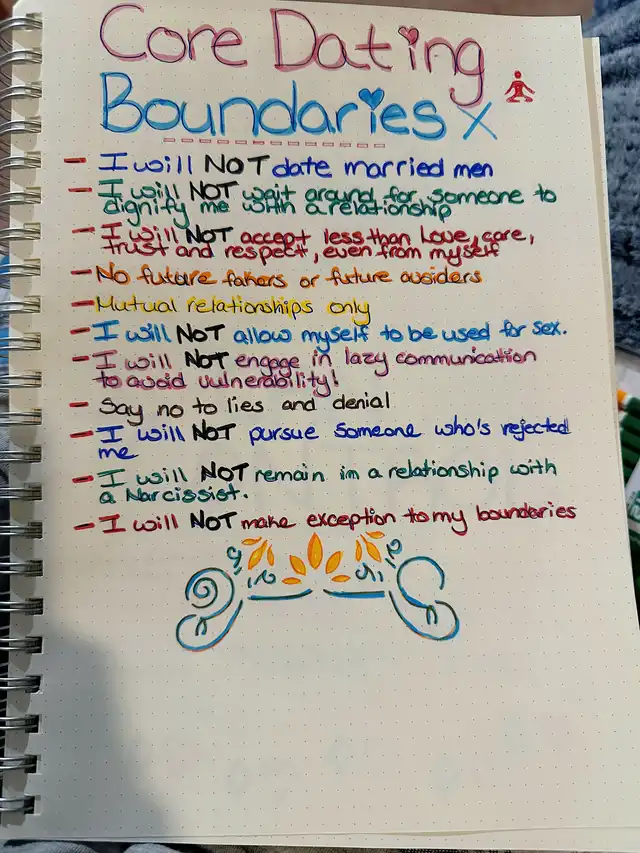 Core Dating
Boundaries x
- I will NOT date married men
- I will NOT wait around for someone to
dignify me with a relationship
- I will NOT accept less than Love, care,
trust and respect, even from myself
- No future fakers or future avoiders
- Mutual relationships only
- I will NOT allow myself to be used for sex.
- I will NOT engage in lazy communication
to avoid vulnerability!
- Say no to lies and denial
- I will NOT pursue someone who's rejected
me
- I will NOT remain in a relationship with
a Narcissist.
- I will NOT make exception to my boundaries